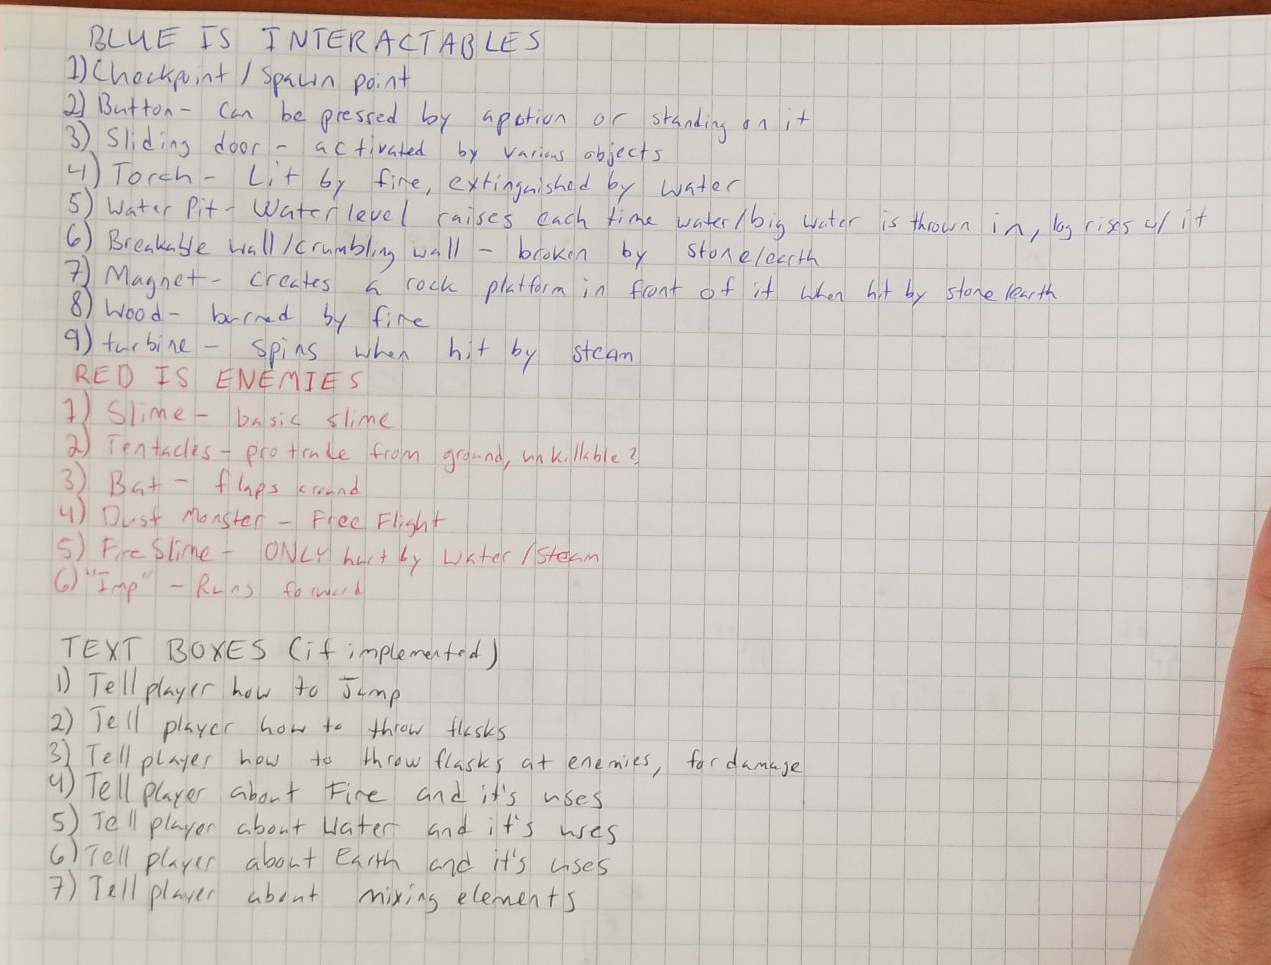 BLUE IS INTERACTABLES
1) Checkpoint / Spawn point
2) Button - can be pressed by a potion or standing on it
3) Sliding door - activated by various objects
4) Torch - Lit by fire, extinguished by water
5) Water Pit - Water level raises each time water/big water is thrown in, log rises w/ it
6) Breakable wall/crumbling wall - broken by stone/earth
7) Magnet - creates a rock platform in front of it when hit by stone/earth
8) Wood - burned by fire
9) turbine - spins when hit by steam
RED IS ENEMIES
1) Slime - basic slime
2) Tentacles - protrude from ground, unkillable?
3) Bat - flaps around
4) Dust Monster - Free Flight
5) Fire Slime - ONLY hurt by Water/Steam
6) "Imp" - Runs forward
TEXT BOXES (if implemented)
1) Tell player how to Jump
2) Tell player how to throw flasks
3) Tell player how to throw flasks at enemies, for damage
4) Tell Player about Fire and it's uses
5) Tell player about Water and it's uses
6) Tell player about Earth and it's uses
7) Tell player about mixing elements